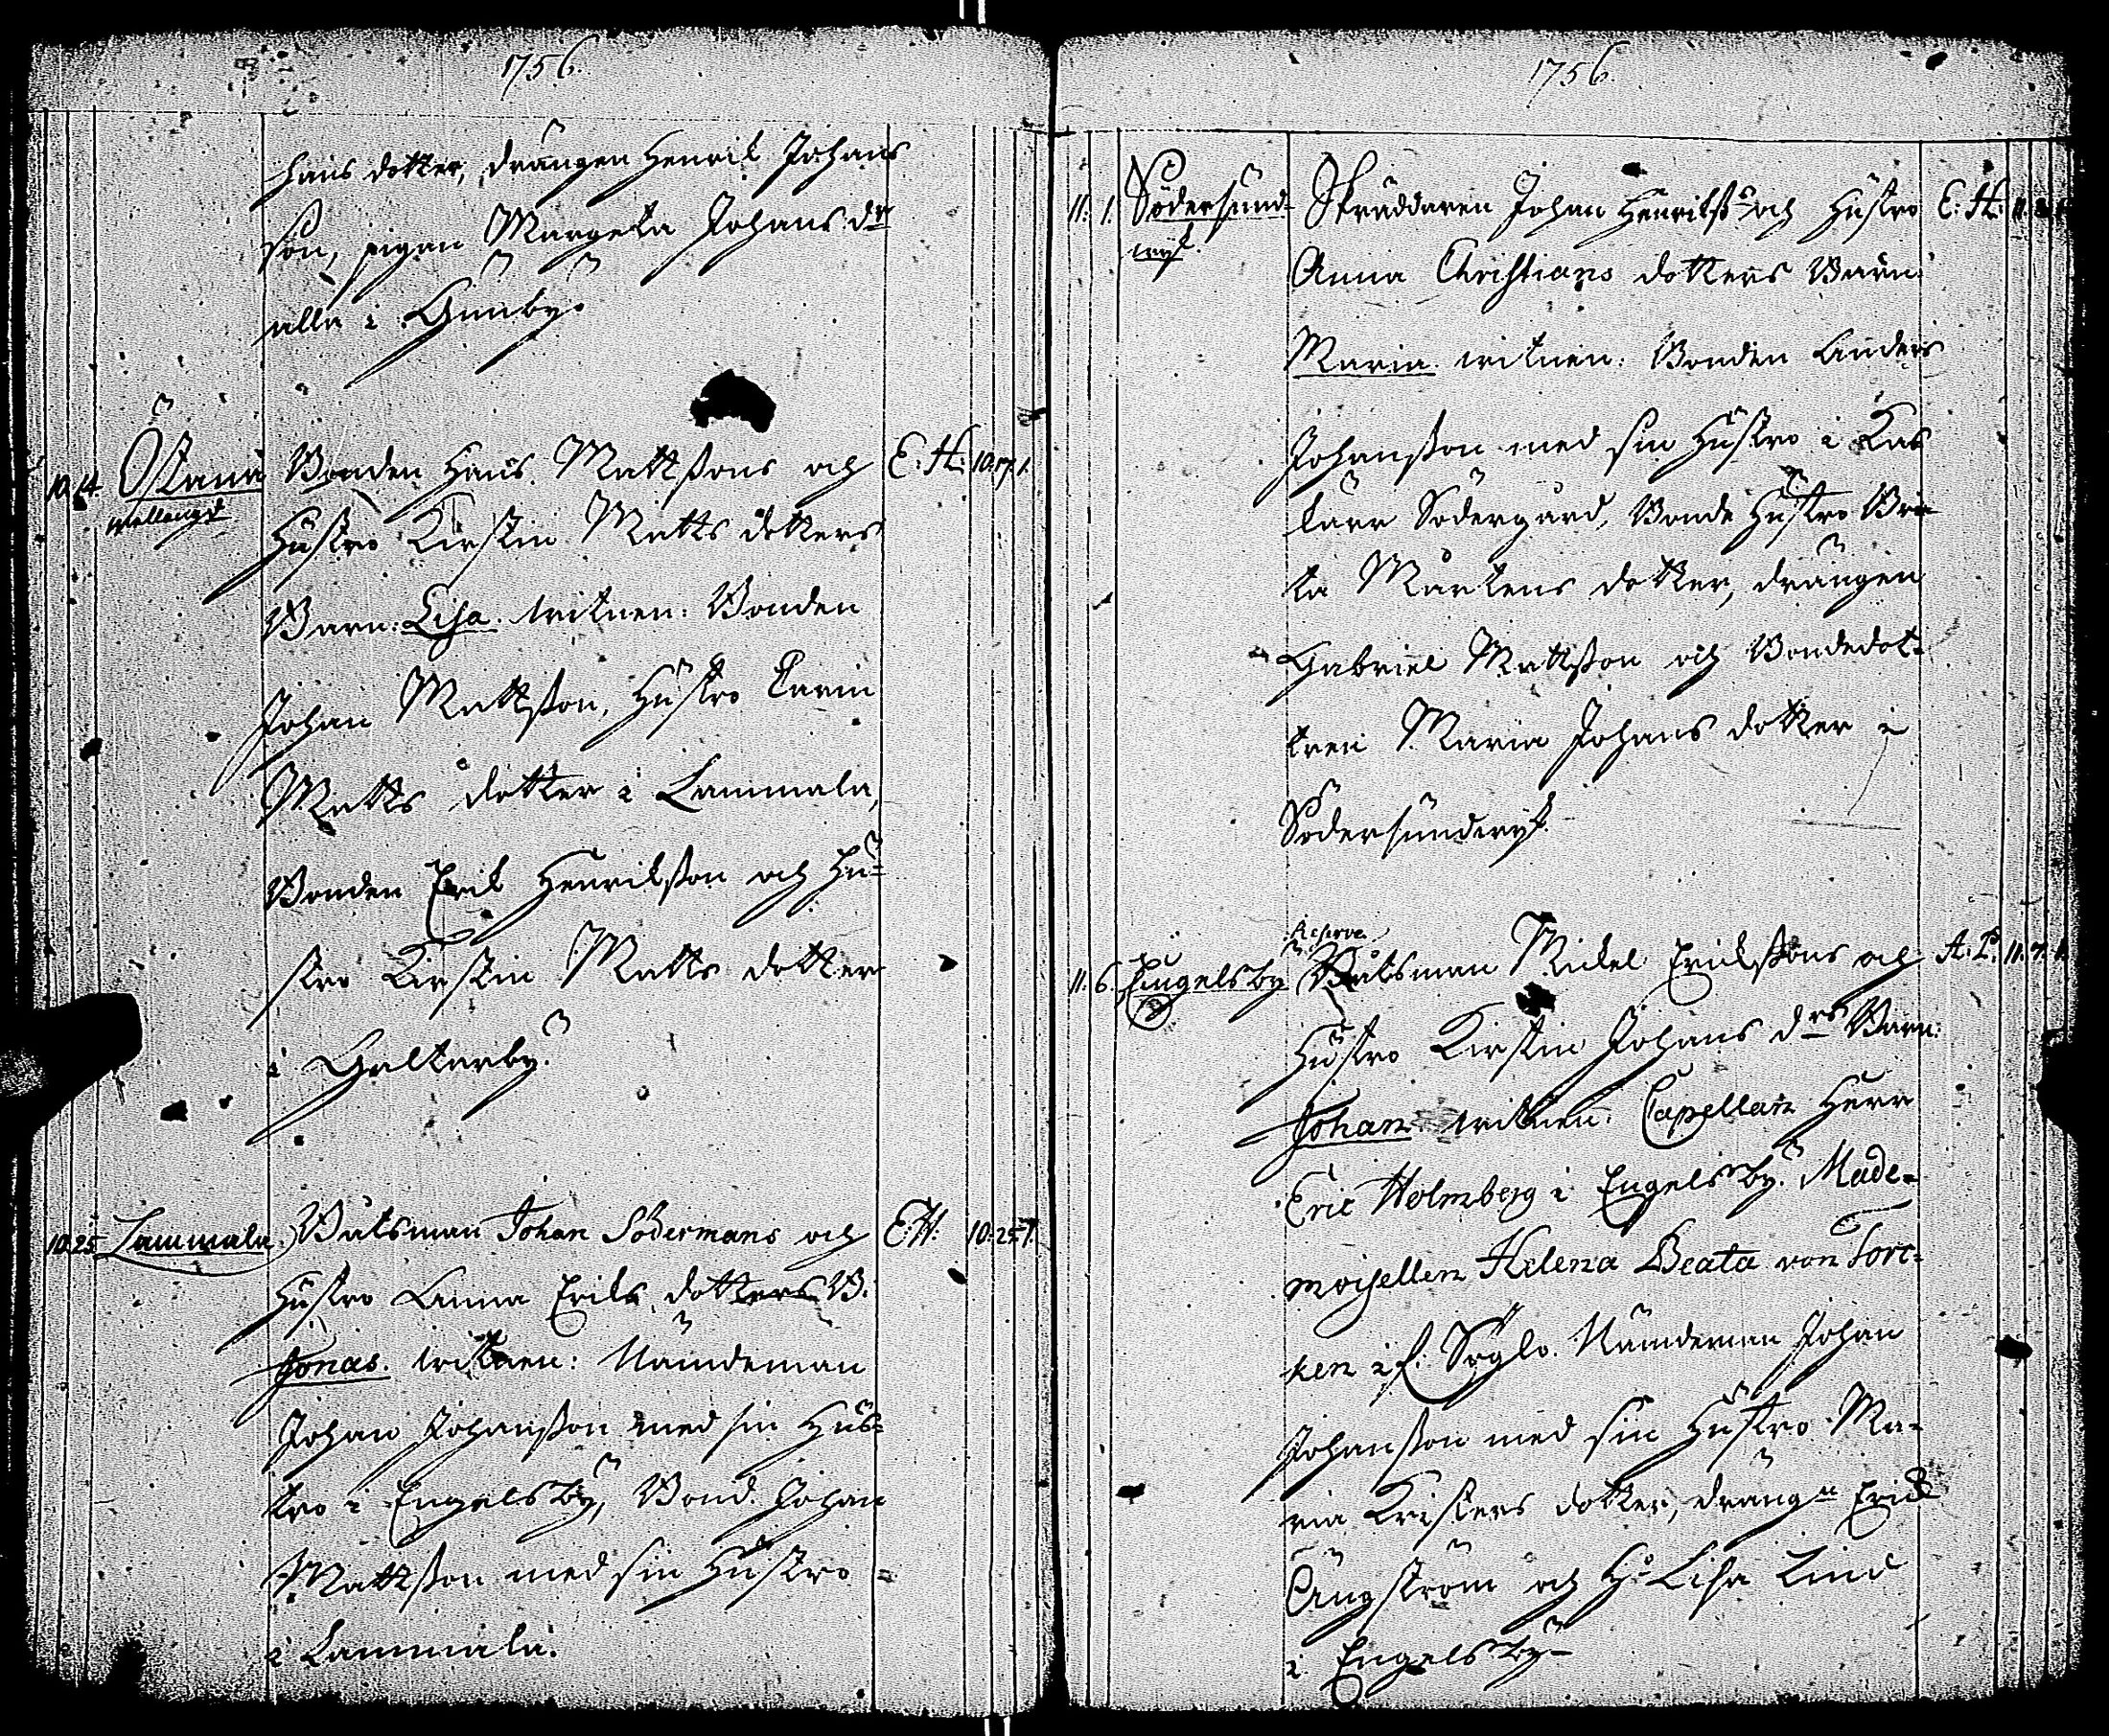 1756.
hans dotter, drängen Henrik Johans
son, pigan Margeta Johans dr
alla i Gunby.
10. 14. Östanå Bonden Hans Mattsons och E. H: 10. 17. 1.
mellangd Hustro Kirstin Matts dotters
Barn: Lisa. witnen: Bonden
Johan Mattsson, Hustro Carin
Matts dotter i Lammala,
Bonden Erik Henriksson och Hu-
stro Kirstin Matts dotter
i Galtarby.
10. 25 Lammala Båtsman Johan Södermans och E. H. 10. 25. 1.
Hustro Anna Eriks dotters B.
Jonas. witnen: Nämdeman
Johan Johansson med sin Hus-
tro i Engelsby, Bond. Johan
Mattsson med sin Hustro
i Lammala.
1756.
11. 1. Södersund- Skräddaren Johan Henrikss och Hustro E. H:
wyk. Anna Christians dotters Barn:
Maria. witnen: Bonden Anders
Johansson med sin Hustro i Kas
kärr Södergård, Bonde Hustro Bri-
ta Mårtens dotter, drängen
Gabriel Mattsson och Bondedot-
tren Maria Johans dotter i
Södersundwyk.
Reserve
11. 6. Engelsby Båtsman Mickel Erikssons och A. P. 11. 7. 1.
Hustro Kirstin Johans drs Barn:
Johan. witnen. Capellan Herr
Eric Holmberg i Engelsby. Made-
moisellen Helena Beata von Torc-
ken i f. Söglo. Nämdeman Johan
Johansson med sin Hustro Ma-
ria Kristers dotter, dräng n Erick
Ångström och H: Lisa Lind
i Engelsby